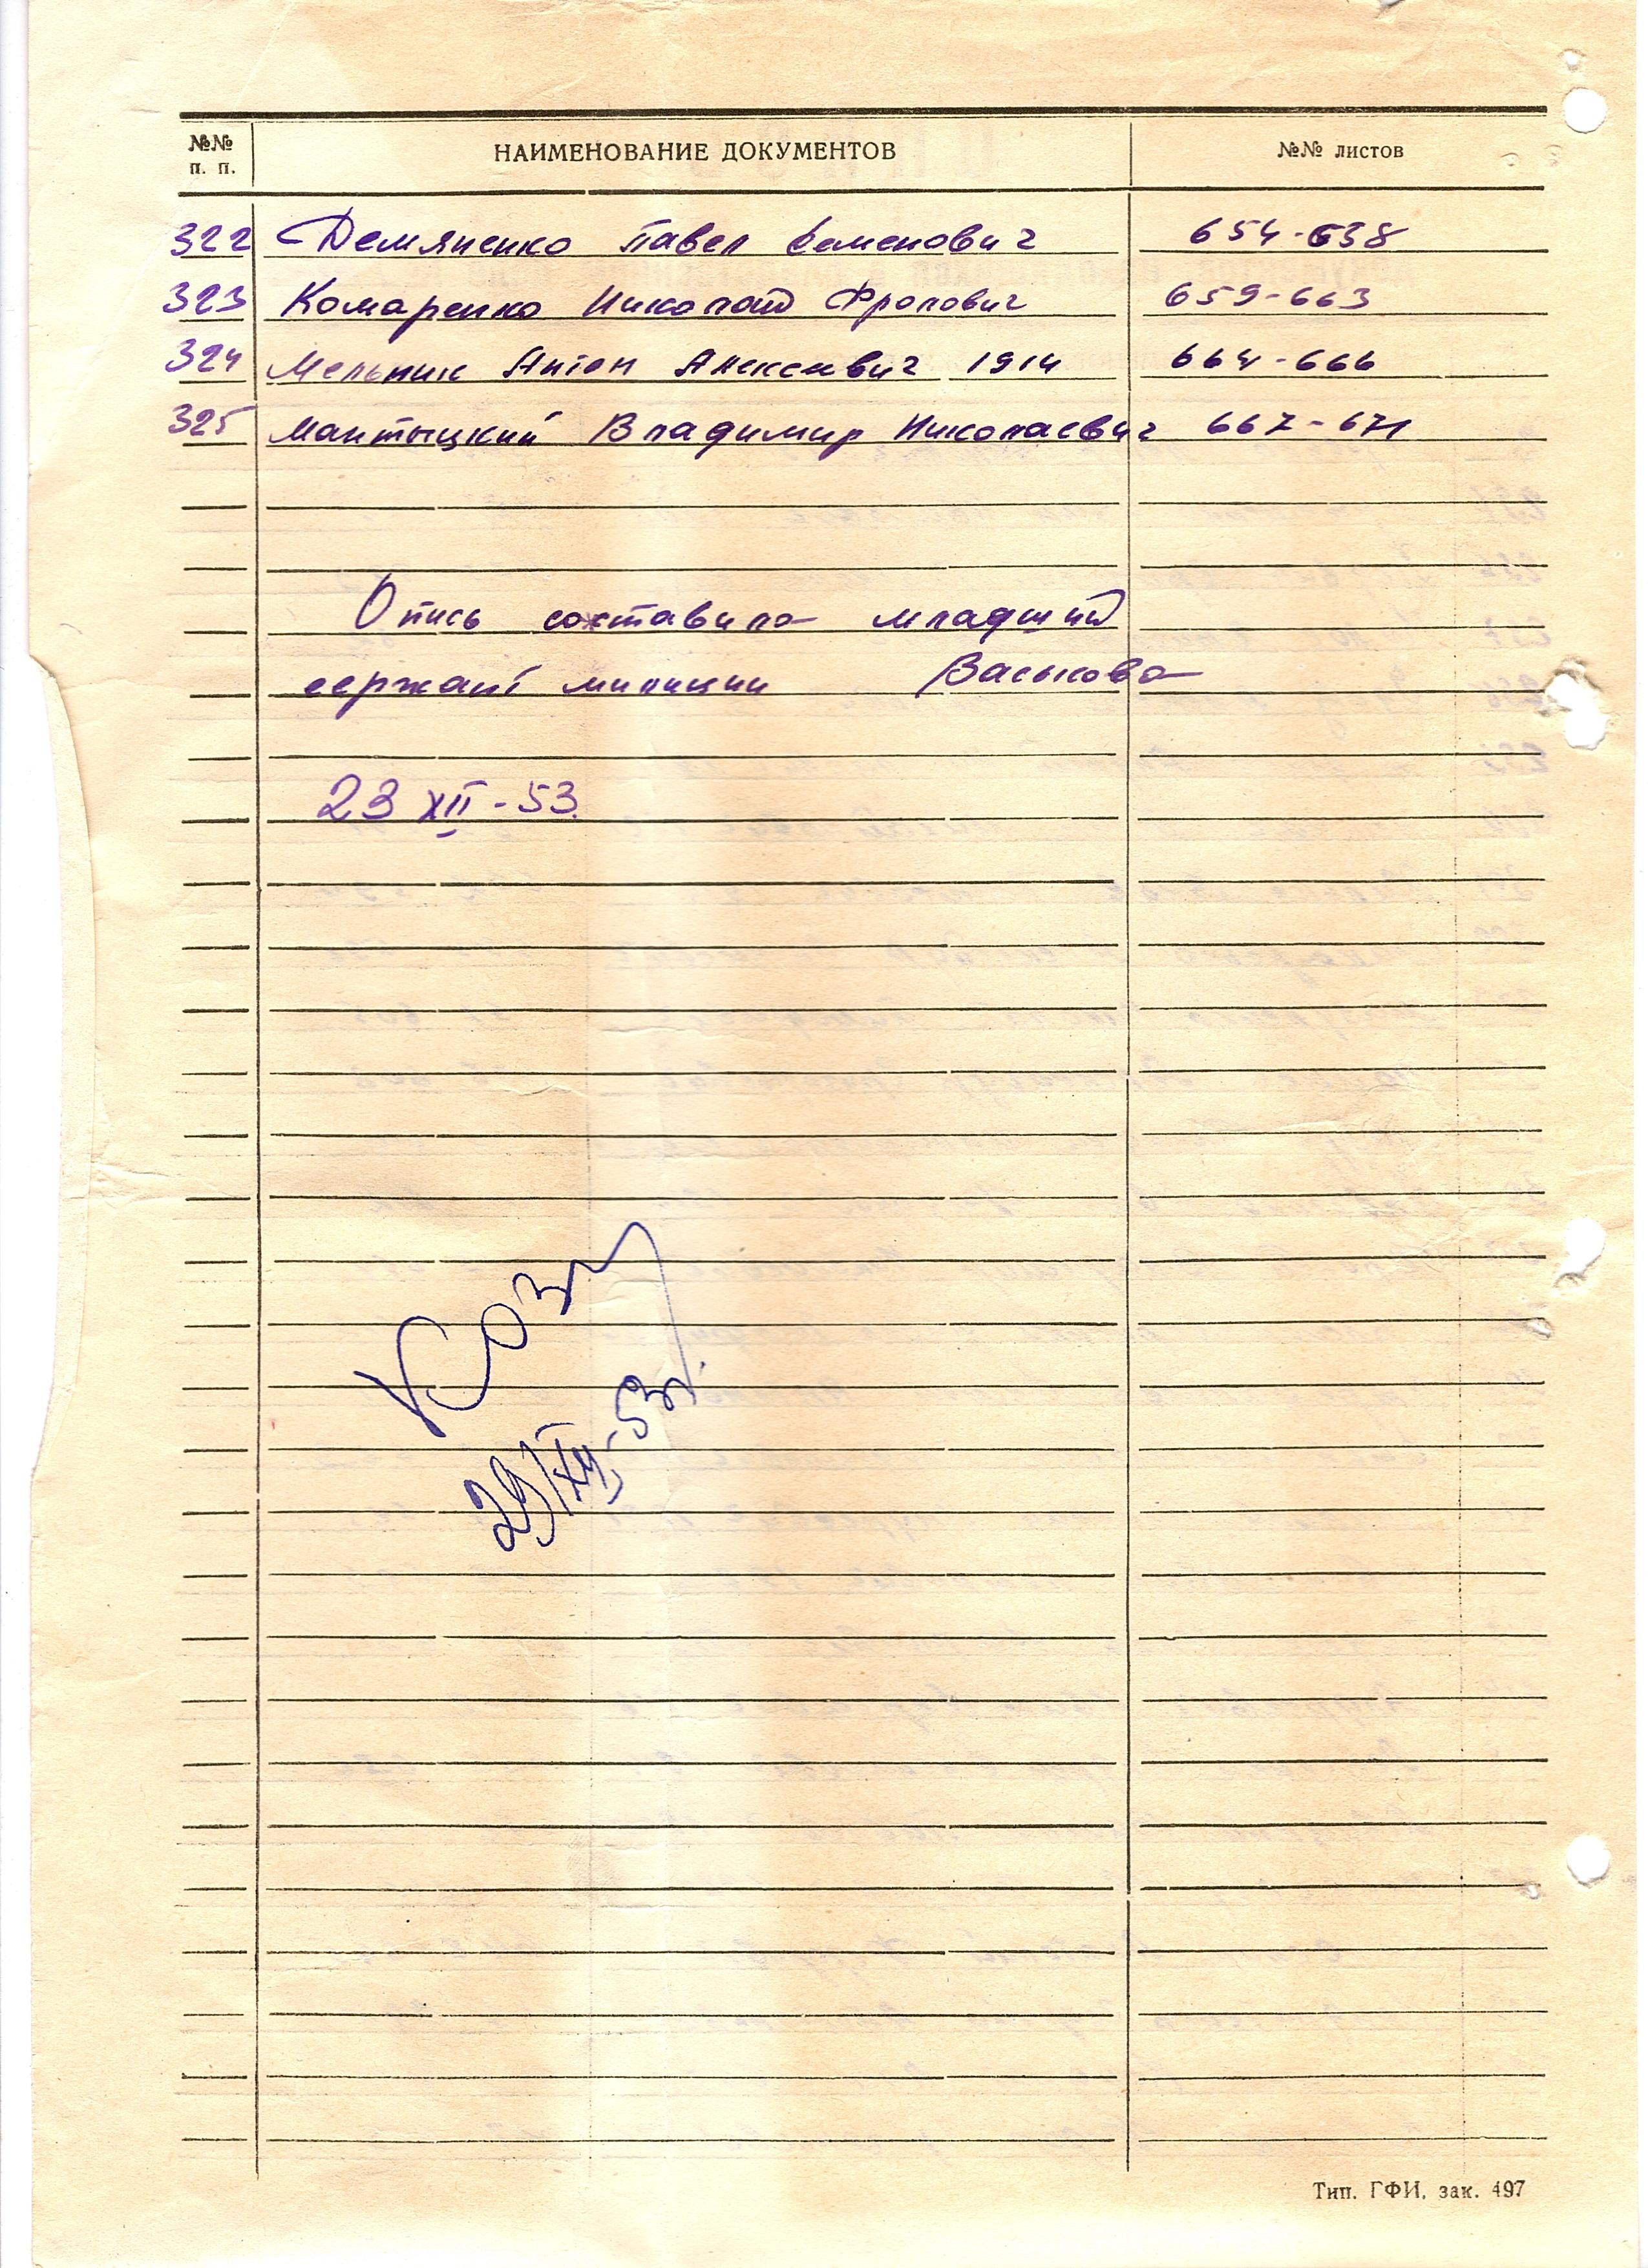 №№ п. п. НАИМЕНОВАНИЕ ДОКУМЕНТОВ №№ листов
322 Демяненко Павел Семенович 654-638
323 Комаренко Николай Фролович 659-663
324 Мельник Антон Алексеевич 1914 664-666
325 Мантыцкий Владимир Николаевич 667-671
Опись составила младший
сержант милиции Васькова
23 XII - 53.
29/XII-53г.
Тип. ГФИ, зак. 497